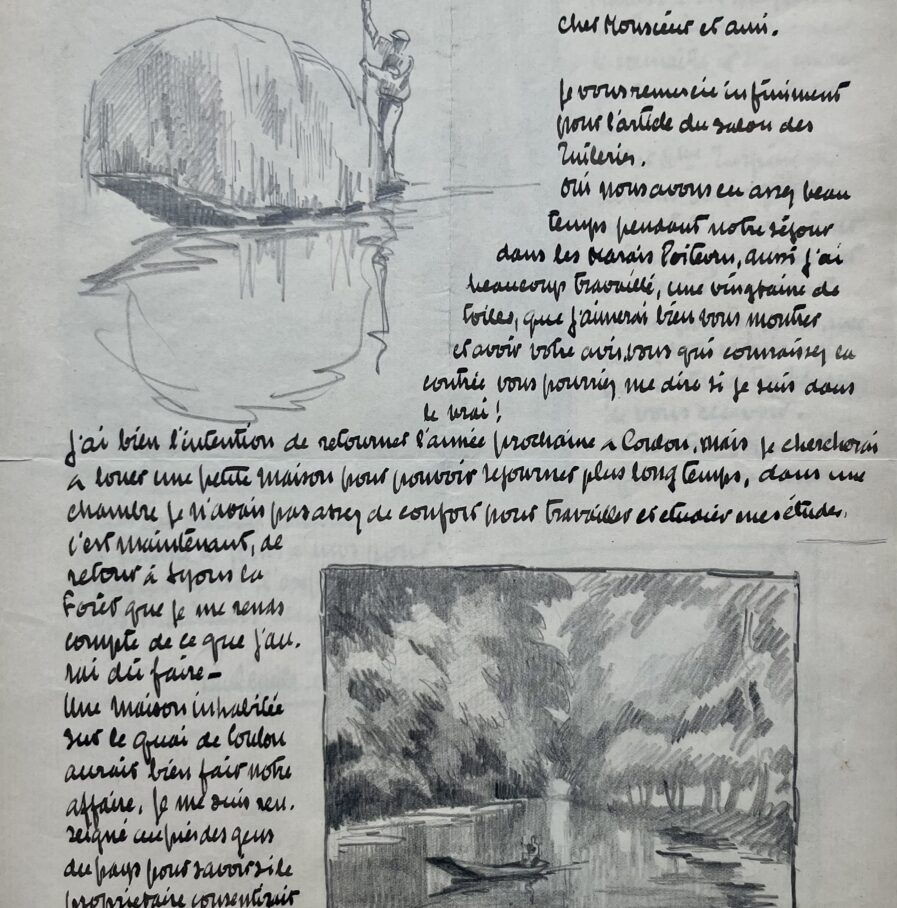 cher Monsieur et ami.
Je vous remercie infiniment
pour l'article du salon des
Tuileries.
Oui nous avons eu assez beau
temps pendant notre séjour
dans les Marais Poitevin, aussi j'ai
beaucoup travaillé, une vingtaine de
toiles, que j'aimerai bien vous montrer
et avoir votre avis, vous qui connaissez la
contrée vous pourriez me dire si je suis dans
le vrai !
J'ai bien l'intention de retourner l'année prochaine a Coulon, mais je chercherai
a louer une petite maison pour pouvoir sejourner plus long temps, dans une
chambre je n'avais pas assez de confort pour travailler et etudier mes études.
c'est maintenant, de
retour à Lyons la
Forêt que je me rends
compte de ce que j'au.
rai dû faire –
Une maison inhabitée
sur le quai de Coulon
aurait bien fait notre
affaire. Je me suis ren.
seigné auprès des gens
du pays pour savoir si le
propriétaire consentirait